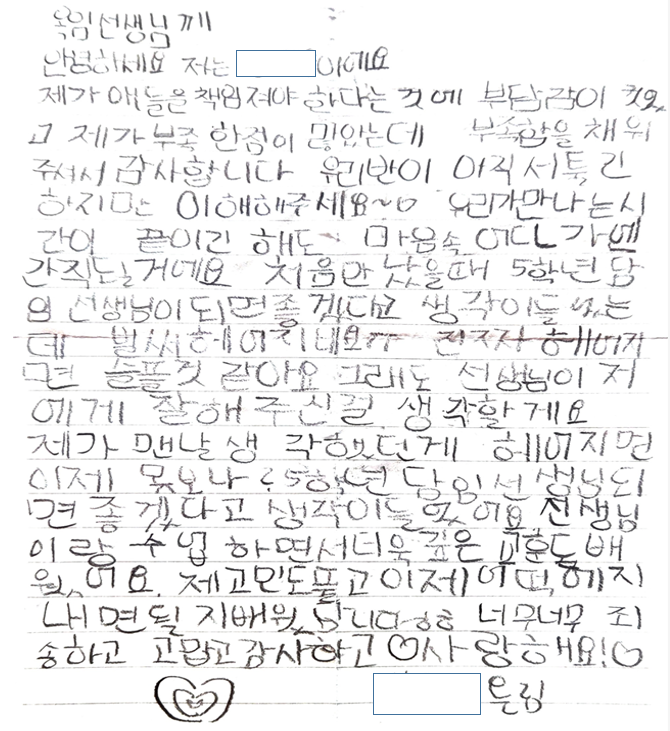 옥임선생님께
안녕하세요 저는 이에요
제가 애들을 책임져야 하다는 것에 부담감이 컸었
고 제가 부족한점이 많았는데 부족함을 채워
주셔서 감사합니다 우리반이 아직 서툭긴
하지만 이해해주세요~ 우리가만나는시
간이 끝이긴 해도 마음속 어딘가엔
간직될거에요 처음만났을때 5학년담
임선생님이되면좋겠다고 생각이들었는
데 벌써헤어지네요ㅠ 헤어지
면 슬플것 같아요 그래도 선생님이 저
에게 잘해주신걸 생각할게요
제가 맨날생각했던게 헤어지면
이제 못보나? 5학년 담임선생님되
면 좋겠다고 생각이들었어요 선생님
이랑 수업 하면서더욱깊은 교훈도배
웠어요. 제고민도풀고이제어떡헤지
내면될지배웠습니다 너무너무 죄
송하고 고맙고감사하고♡사랑해요!♡
올림